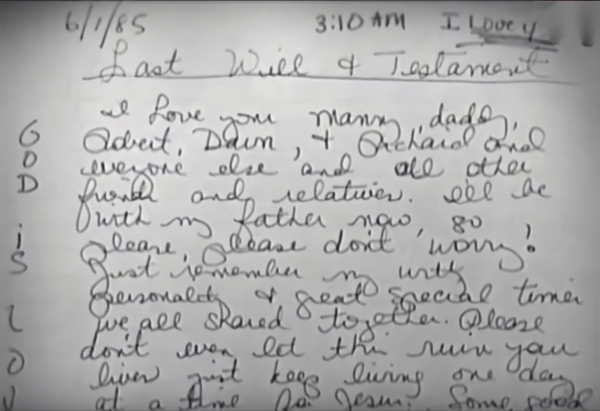 6/1/85 3:10 AM I Love y
Last Will & Testament
I Love you mamy, daddy,
Robert, Dawn, & Richard and
everyone else and all other
friends and relatives. I'll be
with my father now, so
please, please don't worry!
Just remember my witty
personality & great special times
we all shared together. Please
don't ever let this ruin your
lives just keep living one day
at a time for Jesus. Some good
G
O
D
i
S
L
O
V